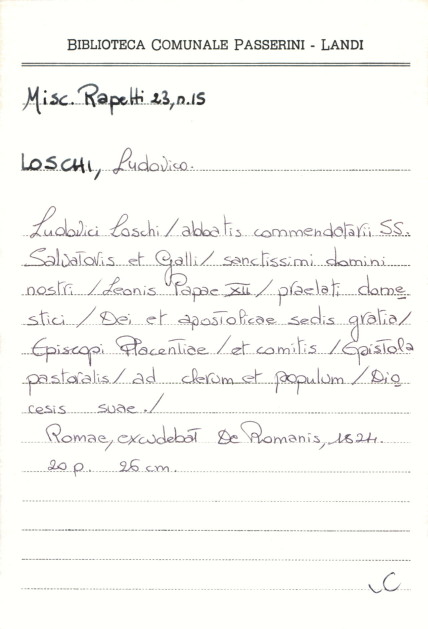 BIBLIOTECA COMUNALE PASSERINI - LANDI
Misc. Rapetti 23, n.15
LOSCHI, Ludovico.
Ludovici Loschi / abbatis commendatarii SS.
Salvatoris et Galli / sanctissimi domini
nostri / Leonis Papae XII / praelati dome
stici / Dei et apostolicae sedis gratia /
Episcopi Placentiae / et comitis / Epistola
pastoralis / ad clerum et populum / Dio
cesis suae. /
Romae, excudebat De Romanis, 1824.
20 p. 26 cm.